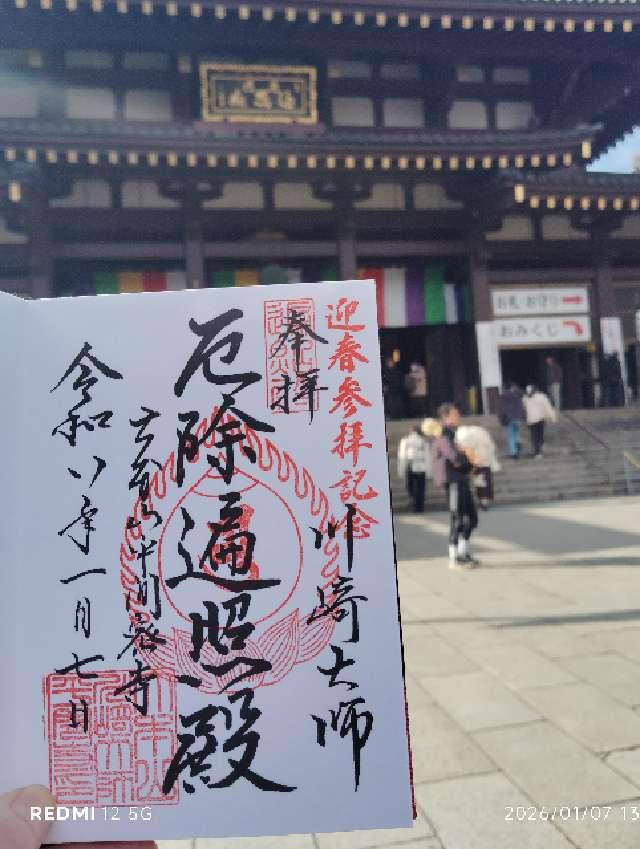 お札・お守り
おみくじ
迎春参拝記念
川崎大師
奉拝
厄除遍照殿
令和八年一月七日
REDMI 12 5G
2026/01/07 13